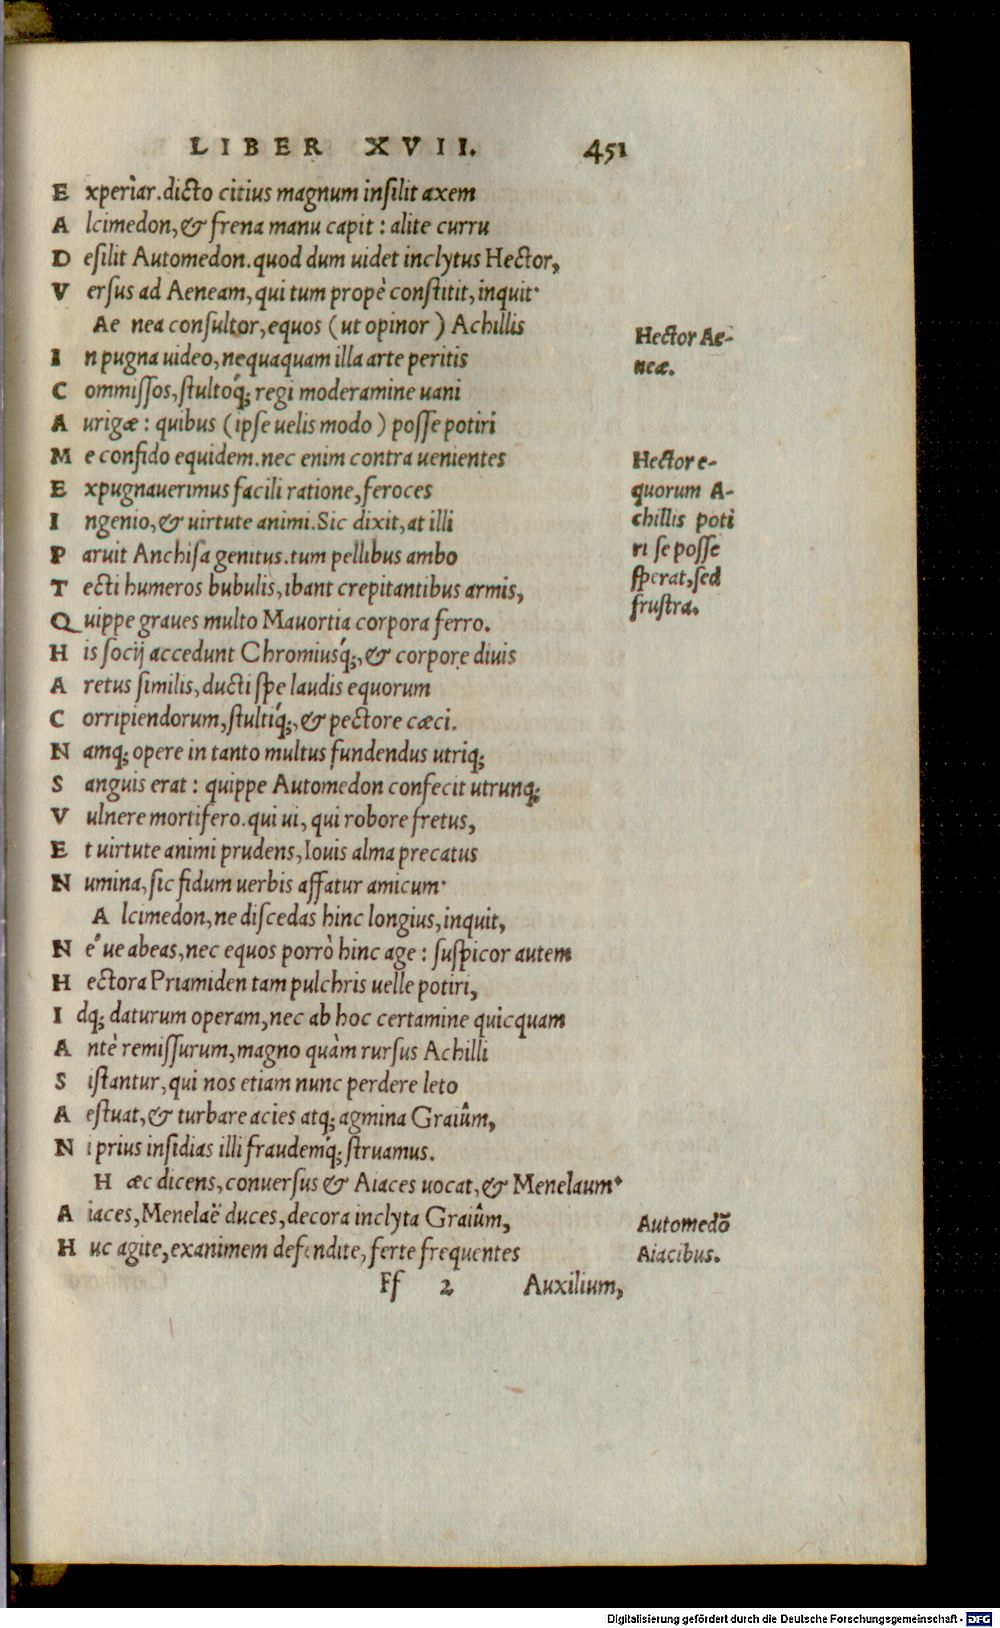 LIBER XVII. 451
Experiar. dicto citius magnum insilit axem
Alcimedon, & frena manu capit : alite curru
Desilit Automedon. quod dum uidet inclytus Hector,
Versus ad Aeneam, qui tum propè constitit, inquit·
Aenea consultor, equos (ut opinor) Achillis
In pugna uideo, nequaquam illa arte peritis
Commissos, stultoq́; regi moderamine uani
Aurigæ : quibus (ipse uelis modo) posse potiri
Me confido equidem. nec enim contra uenientes
Expugnauerimus facili ratione, feroces
Ingenio, & uirtute animi. Sic dixit, at illi
Paruit Anchisa genitus. tum pellibus ambo
Tecti humeros bubulis, ibant crepitantibus armis,
Quippe graues multo Mauortia corpora ferro.
His socij accedunt Chromiusq́;, & corpore diuis
Aretus similis, ducti spe laudis equorum
Corripiendorum, stultiq́;, & pectore cæci.
Namq; opere in tanto multus fundendus utriq;
Sanguis erat : quippe Automedon confecit utrunq;
Vulnere mortifero. qui ui, qui robore fretus,
Et uirtute animi prudens, Iouis alma precatus
Numina, sic fidum uerbis affatur amicum·
Alcimedon, ne discedas hinc longius, inquit,
Né ue abeas, nec equos porrò hinc age : suspicor autem
Hectora Priamiden tam pulchris uelle potiri,
Idq; daturum operam, nec ab hoc certamine quicquam
Antè remissurum, magno quàm rursus Achilli
Sistantur, qui nos etiam nunc perdere leto
Aestuat, & turbare acies atq; agmina Graiûm,
Ni prius insidias illi fraudemq́; struamus.
Hæc dicens, conuersus & Aiaces uocat, & Menelaum·
Aiaces, Menelaë duces, decora inclyta Graiûm,
Huc agite, exanimem defendite, ferte frequentes
Ff 2 Auxilium,
Hector Ae-
neæ.
Hector e-
quorum A-
chillis poti
ri se posse
sperat, sed
frustra.
Automedō
Aiacibus.
Digitalisierung gefördert durch die Deutsche Forschungsgemeinschaft - DFG